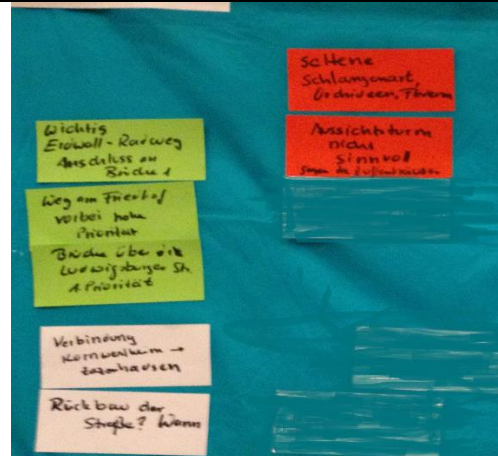 Wichtig
Erdwall-Radweg
Anschluss an
Brücke 1
Weg am Friedhof
vorbei hohe
Priorität
Brücke über die
Ludwigsburger Str.
1. Priorität
Verbindung
Kornwestheim →
Zazenhausen
Rückbau der
Straße? Wann
Seltene
Schlangenart,
Orchideen,
Aussichtsturm
nicht
sinnvoll